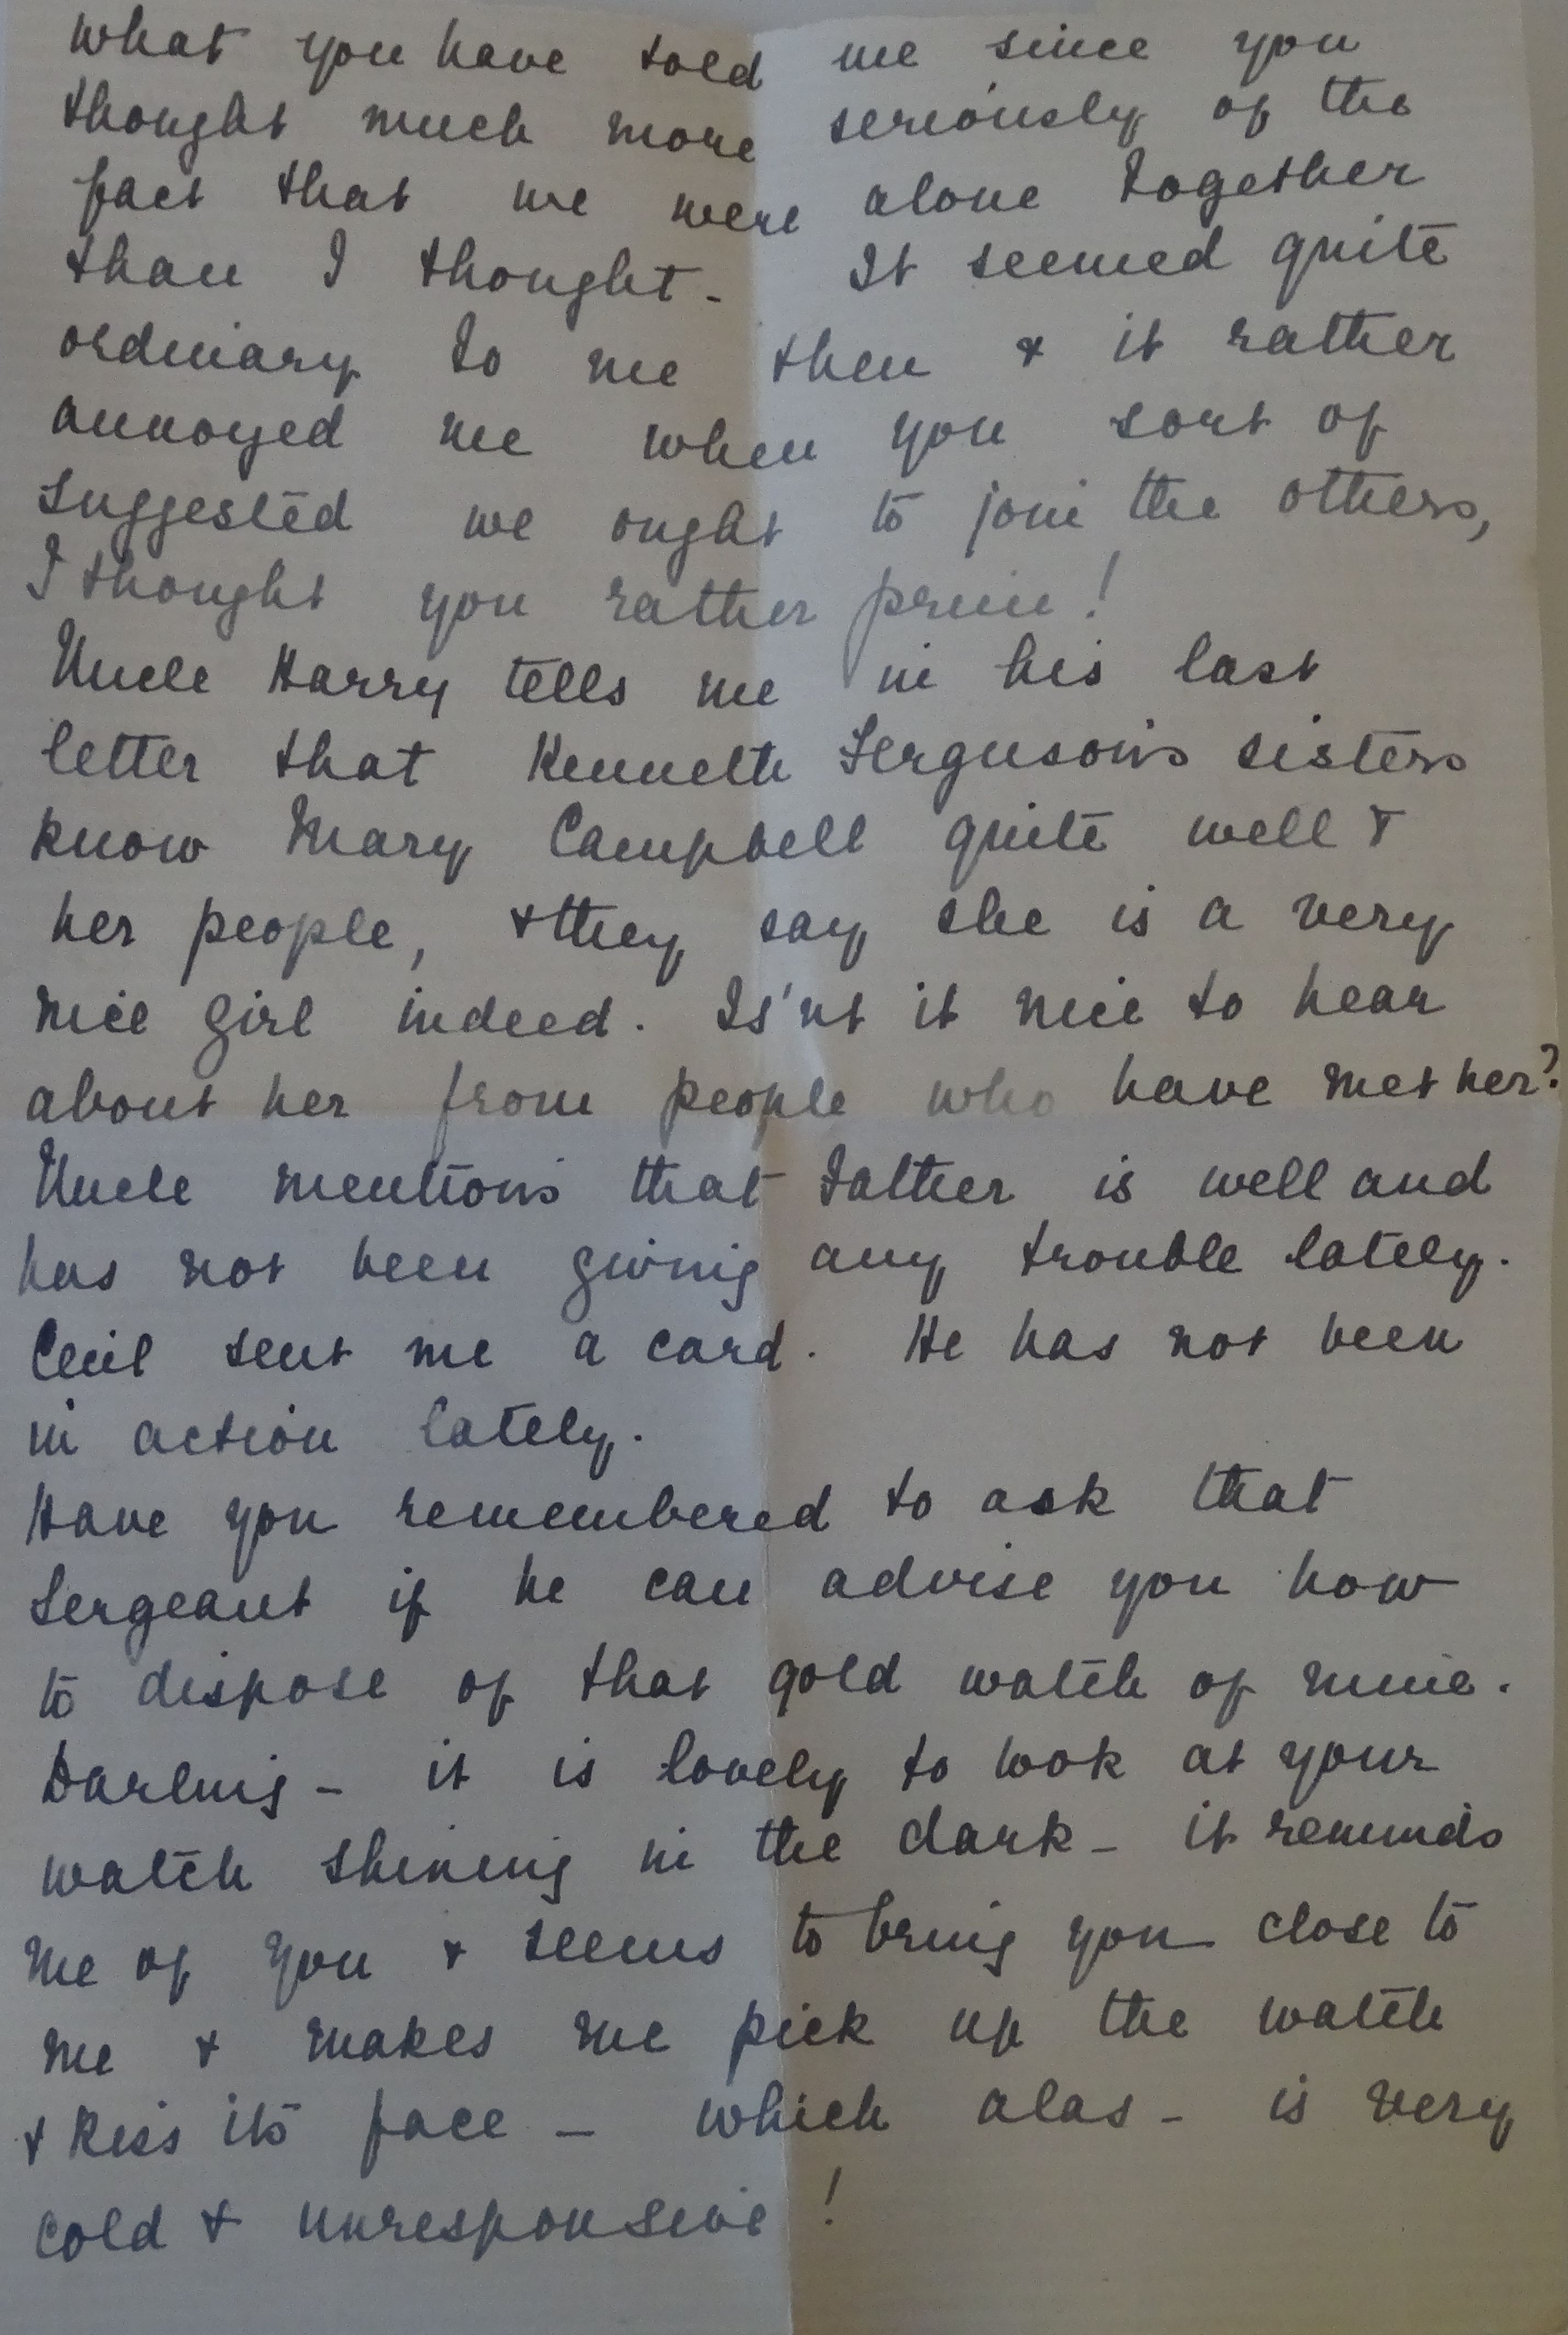 what you have told me since you
thought much more seriously of the
fact that we were alone together
than I thought - It seemed quite
ordinary to me then & it rather
annoyed me when you sort of
suggested we ought to join the others,
I thought you rather prim!
Uncle Harry tells me in his last
letter that Kenneth Ferguson's sisters
know Mary Campbell quite well &
her people, & they say she is a very
nice girl indeed. Is'nt it nice to hear
about her from people who have met her?
Uncle mentions that Father is well and
has not been giving any trouble lately.
Cecil sent me a card. He has not been
in action lately.
Have you remembered to ask that
Sergeant if he can advise you how
to dispose of that gold watch of mine.
Darling - it is lovely to look at your
watch shining in the dark - it reminds
me of you & seems to bring you close to
me & makes me pick up the watch
& kiss its face - which alas - is very
cold & unresponsive!